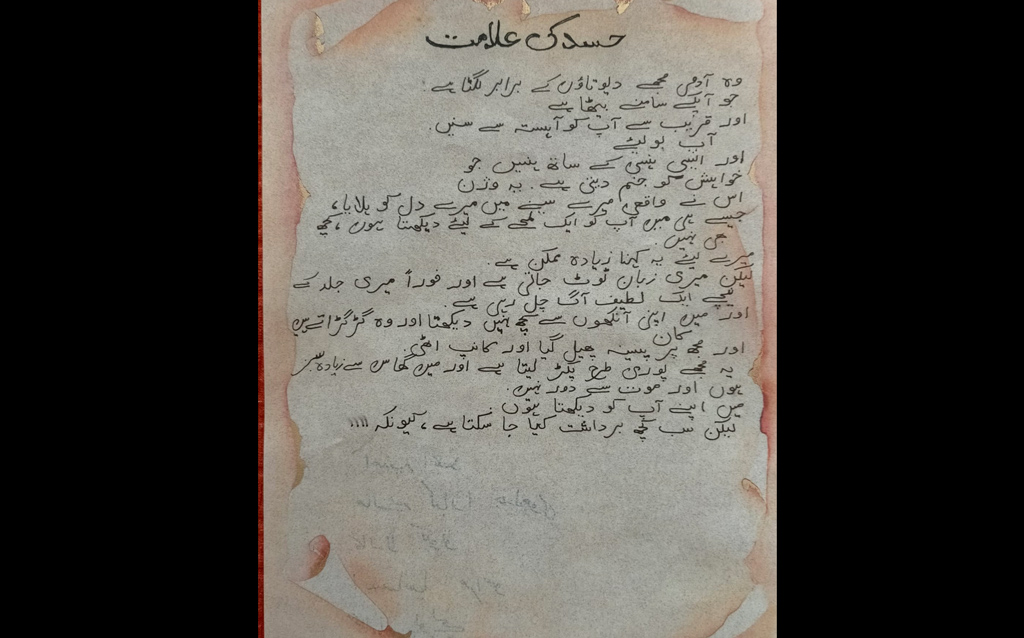 حسد کی علامت
وہ آدمی مجھے دیوتاؤں کے برابر لگتا ہے
جو آپکے سامنے بیٹھا ہے
اور قریب سے آپ کو آہستہ سے سنیں.
آپ بولیئے
اور ایسی ہنسی کے ساتھ ہنسیں جو
خواہش کو جنم دیتی ہے. یہ وژن
اس نے واقعی میرے سینے میں میرے دل کو ہلایا،
جیسے ہی میں آپ کو ایک لمحے کے لیئے دیکھتا ہوں، کچھ
بھی نہیں.
میرے لیئے یہ کہنا زیادہ ممکن ہے.
لیکن میری زبان ٹوٹ جاتی ہے اور فوراً میری جلد کے
نیچے ایک لطیف آگ چل رہی ہے.
اور میں اپنی آنکھوں سے کچھ نہیں دیکھتا اور وہ گڑگڑاتے ہیں
کان
اور مجھ پر پسینہ پھیل گیا اور کانپ اٹھی.
یہ مجھے پوری طرح پکڑ لیتا ہے اور میں گھاس سے زیادہ سبز
ہوں اور موت سے دور نہیں.
میں اپنے آپ کو دیکھتا ہوں.
لیکن سب کچھ برداشت کیا جا سکتا ہے، کیونکہ ،،،،